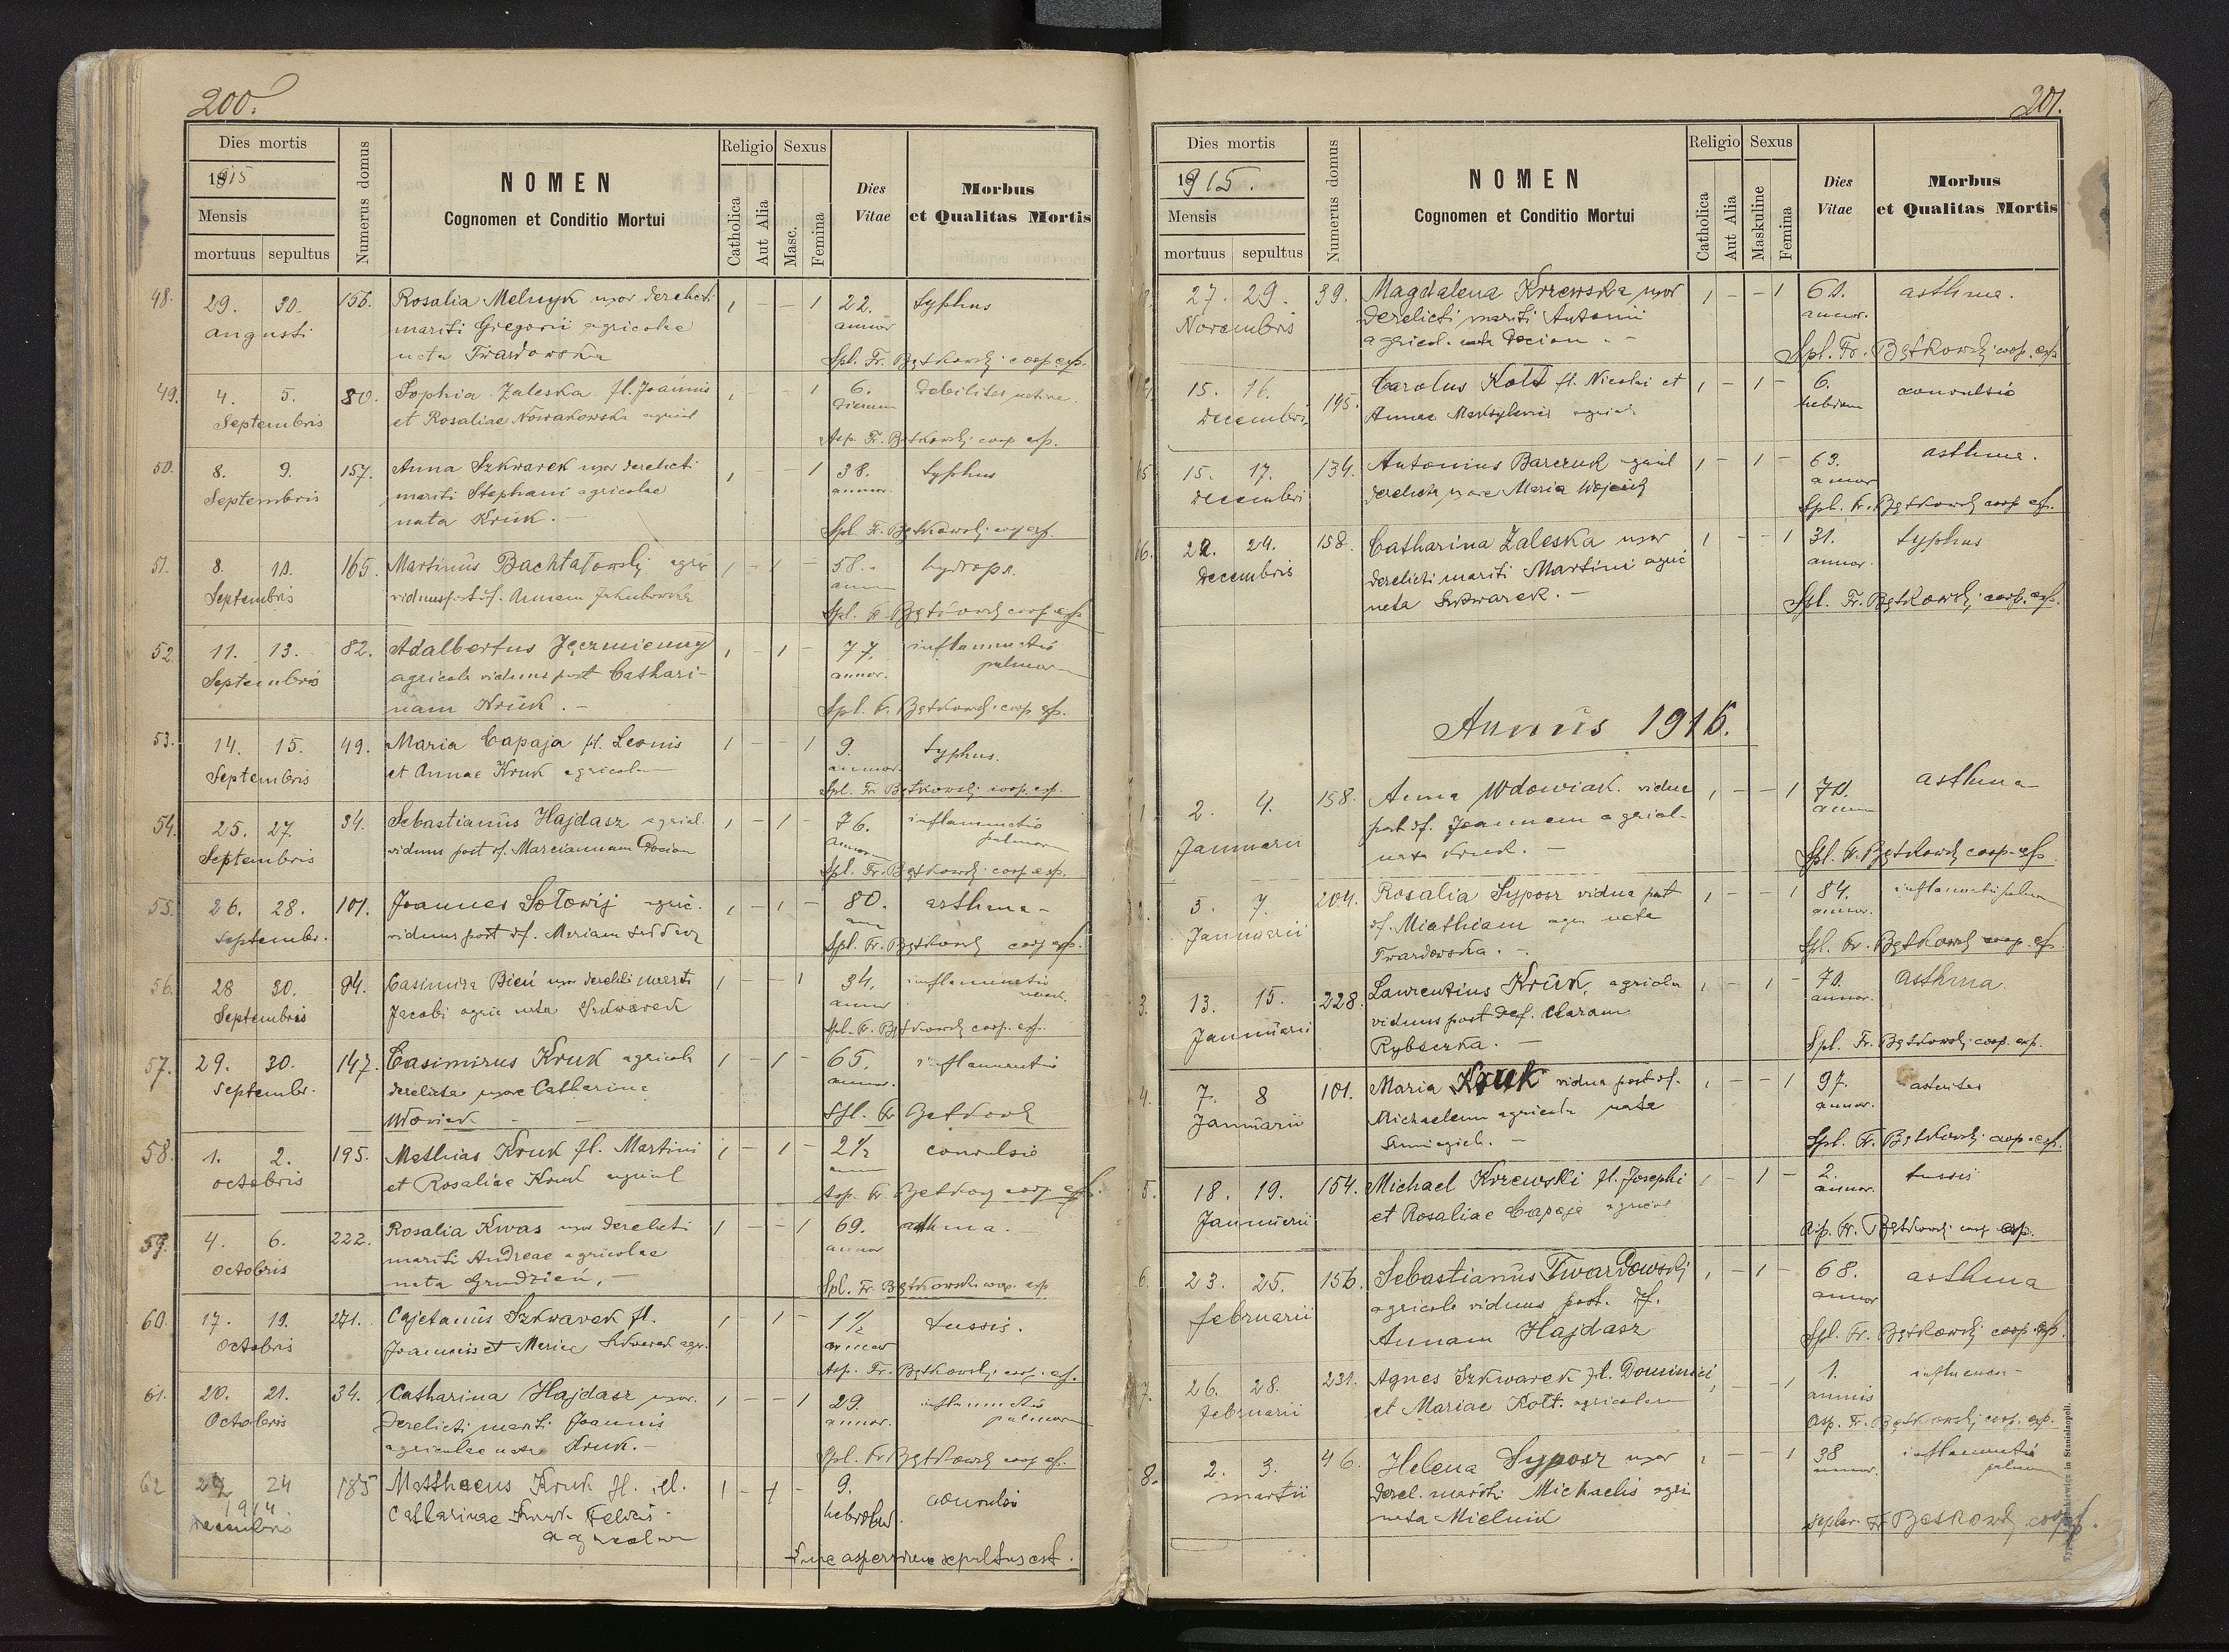 200.
Dies mortis
1915
Mensis
mortuus sepultus
Numerus domus
NOMEN
Cognomen et Conditio Mortui
Religio
Catholica
Aut Alia
Sexus
Masc.
Femina
Dies
Vitae
Morbus
et Qualitas Mortis
48. 29. 30. 156. Rosalia Melnyk uxor derelicti 1 - - 1 22. typhus
augusti mariti Gregorii agricolae annor
nata Twardowska Spl. Fr. Bętkowski coop. exp.
49. 4. 5. 80. Sophia Zaleska fl. Joannis 1 - 1 6. debilitas
Septembris et Rosaliae Nowakowska agricol dierum
Asp. Fr. Bętkowski coop exp.
50. 8. 9. 157. Anna Szkwarek uxor derelicti 1 - 1 38. typhus
Septembris mariti Stephani agricolae annor.
nata Kruk. Spl. Fr. Bętkowski coop exp.
51. 8. 10. 165. Martinus Bachtałowski agric 1 - 1 - 58. hydrops.
Septembris viduus post df. Annam Jakubowska
Spl. Fr. Bętkowski coop. exp.
52. 11. 13. 82. Adalbertus Jęczmienny 1 - 1 - 77. inflammatio
Septembris agricola viduus post Cathari- annor. pulmon
nam Kruk. - Spl. Fr. Bętkowski coop exp.
53. 14. 15. 49. Maria Capaja fl. Leonis 1 - - 1 9. typhus.
Septembris et Annae Kruk agricolar annor
Spl. Fr. Bętkowski coop. exp.
54. 25. 27. 34. Sebastianus Hajdasz agricol. 1 - 1 - 76. inflammatio
Septembris viduus post df. Marciannam Docian annor pulmon
Spl. Fr. Bętkowski coop exp.
55. 26. 28. 101. Joannes Sołowij agric. 1 - 1 - 80. asthma -
Septembr. viduus post df. Mariam
Spl. Fr. Bętkowski coop exp.
56. 28 30. 94. Casimira Bień uxor derelicti mariti 1 - 1 34. inflammatio
Septembris Jacobi agric nata Szkwarek annor
Spl. Fr. Bętkowski coop. exp.
57. 29. 30. 147. Casimirus Kruk agricola 1 - 1 - 65. inflammatio
Septembr. derelicta uxore Catharina annor.
Wdowiak Spl. Fr. Bętkowski
58. 1. 2. 195. Mathias Kruk fl. Martini 1 - 1 - 2½ convulsio
octobris et Rosaliae Kruk agricol
Asp. Fr. Bętkowski coop exp.
59. 4. 6. 222. Rosalia Kwas uxor derelicti 1 - - 1 69. asthma.
octobris mariti Andreae agricolae annor
nata Grudzień, - Spl. Fr. Bętkowski coop. exp
60. 17. 19. 271. Cajetanus Szkwarek fl. 1 - 1 - 1½ tussis.
Octobris Joannis et Mariae Szkwarek agr. annor
Asp. Fr. Bętkowski coop. exp.
61. 20. 21. 34. Catharina Hajdasz uxor. 1 - - 1 29. inflammatio
Octobris derelicti mariti Joannis annor. pulmon
agricolae nata Kruk. - Spl. Fr Bętkowski coop exp.
62 22 24 185 Matthaeus Kruk fl. il. 1 - 1 - 9. convulsio
1914 Catharinae Kruk Felcis hebdomad.
Decembris agricolar
sine aspersione sepultus est.
201.
Dies mortis
1915.
Mensis
mortuus sepultus
Numerus domus
NOMEN
Cognomen et Conditio Mortui
Religio
Catholica
Aut Alia
Sexus
Maskuline
Femina
Dies
Vitae
Morbus
et Qualitas Mortis
27. 29. 39. Magdalena Krzewska uxor 1 - - 1 60. asthma.
Novembris derelicti mariti Antonii annor.
agricol. nata Docian. - Spl. Fr. Bętkowski coop. exp
15. 16. 145. Carolus Kołt fl. Nicolai et 1 - 1 - 6. convulsio
Decembris Annae agricol.
15. 17. 134. Antonius Barczuk agricol 1 - 1 - 63. asthma.
Decembris derelicta uxore Maria Wojcich annor
Spl. Fr. Bętkowski coop exp.
16. 22. 24. 158. Catharina Zaleska uxor 1 - - 1 31. typhus
Decembris derelicti mariti Martini agric annor.
nata Szkwarek. - Spl. Fr. Bętkowski coop. exp.
Annus 1916.
1 2. 4. 158. Anna Wdowiak vidua 1 - - 1 70. asthma
Januarii post df. Joannem agricol-
nata Kruk. - Spl. Fr. Bętkowski coop. exp
2. 5. 7. 204. Rosalia Syposz vidua post 1 - - 1 84. inflammatio pulmon
Januarii df. Mathiam agr. nata annor.
Twardowska. - Spl. Fr. Bętkowski coop. exp
3. 13. 15. 228. Laurentius Kruk, agricola 1 - 1 - 70. asthma.
Januarii viduus post def. Claram annor.
Rybeczka. - Spl. Fr. Bętkowski coop. exp.
4. 7. 8 101. Maria Kruk vidua post df. 1 - - 1 97.
Januarii Michaelem agricola nata annor.
Spl. Fr. Bętkowski coop. exp.
5. 18. 19. 154. Michael Krzewski fl. Josephi 1 - 1 - 2. tussis
Januarii et Rosaliae Capaja agricol annor.
Asp. Fr. Bętkowski coop exp.
6. 23. 25. 156. Sebastianus Twardowski 1 - 1 - 68. asthma
februarii agricola viduus post. df. annor
Annam Hajdasz Spl. Fr. Bętkowski coop. exp.
7. 26. 28. 231. Agnes Szkwarek fl. Dominici - - 1 1.
februarii et Mariae Kołt. agricolar annus
Asp. Fr. Bętkowski coop. exp.
8. 2. 3. 46. Helena Syposz uxor 1 - - 1 38 inflammatio
martii derel. mariti Michaelis agri annor. pulmon
nata Mielnik Fr Bętkowski coop exp.